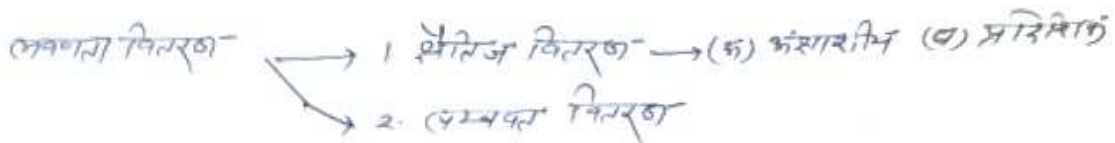 लवणता वितरण → 1 क्षैतिज वितरण → (क) अंक्षाशीय (ख) प्रादेशिक
→ 2. लम्बवत वितरण